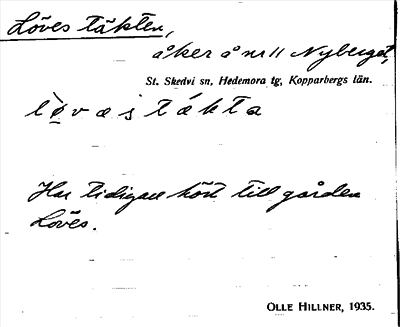 Löves täkten,
åker å nr 11 Nyberget,
St. Skedvi sn, Hedemora tg, Kopparbergs län.
lø̀væstákta
Har tidigare hört till gården
Löves.
OLLE HILLNER, 1935.